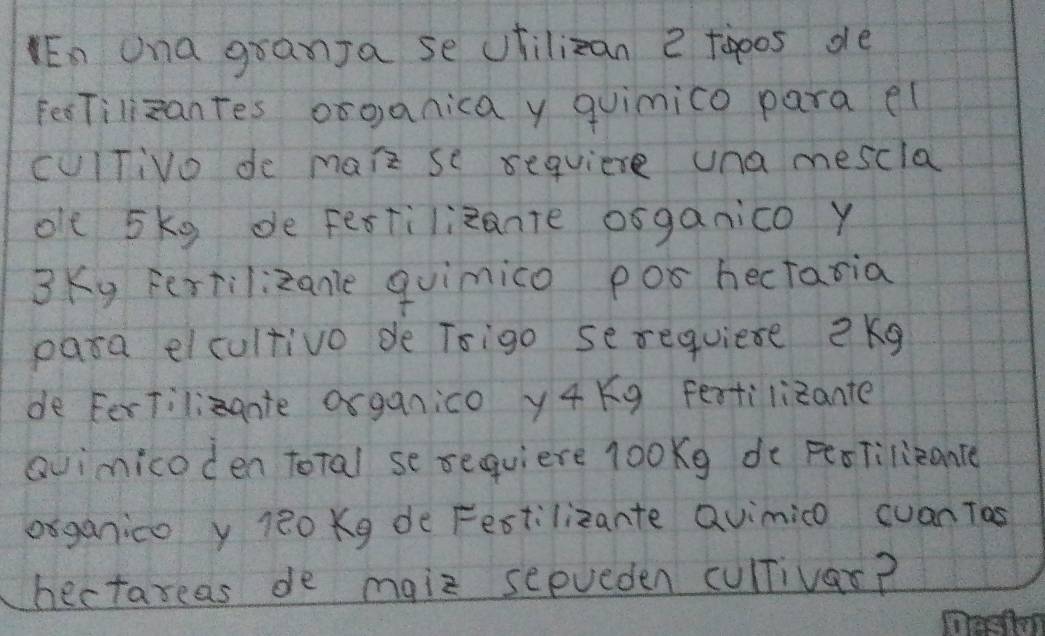 En una granja se utilizan 2 tipos de
fertilizantes organica y quimico para el
cultivo de maiz se requiere una mescla
de 5kg de Fertilizante organico y
3Kg Fertilizante quimico por hectaria
para el cultivo de Trigo se requiere 2Kg
de Fertilizante organico y 4 Kg Fertilizante
Quimico den total se requiere 100Kg de Fertilizante
organico y 120 Kg de Fertilizante Quimico cuantas
hectareas de maiz se pueden cultivar?